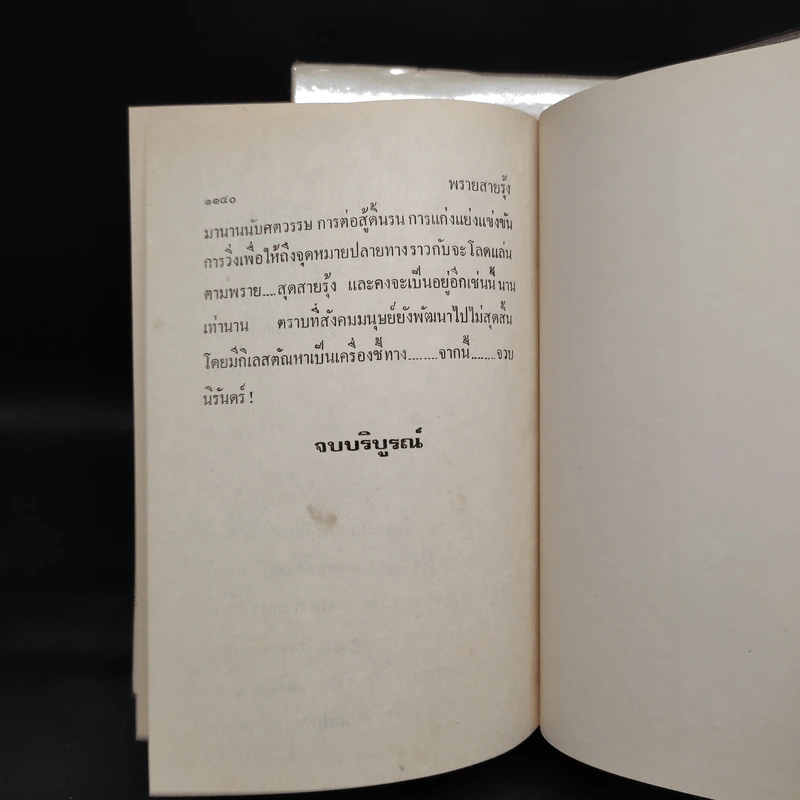 พรายสายรุ้ง
๑๑๔๐
มานานนับศตวรรษ การต่อสู้ดิ้นรน การแก่งแย่งแข่งขัน
การวิ่งเพื่อให้ถึงจุดหมายปลายทาง ราวกับจะโลดแล่น
ตามพราย....สุดสายรุ้ง และคงจะเป็นอยู่อีกเช่นนี้ นาน
เท่านาน ตราบที่สังคมมนุษย์ยังพัฒนาไปไม่สุดสิ้น
โดยมีกิเลสตัณหาเป็นเครื่องชี้ทาง........จากนี้........จวบ
นิรันดร์ !
จบบริบูรณ์